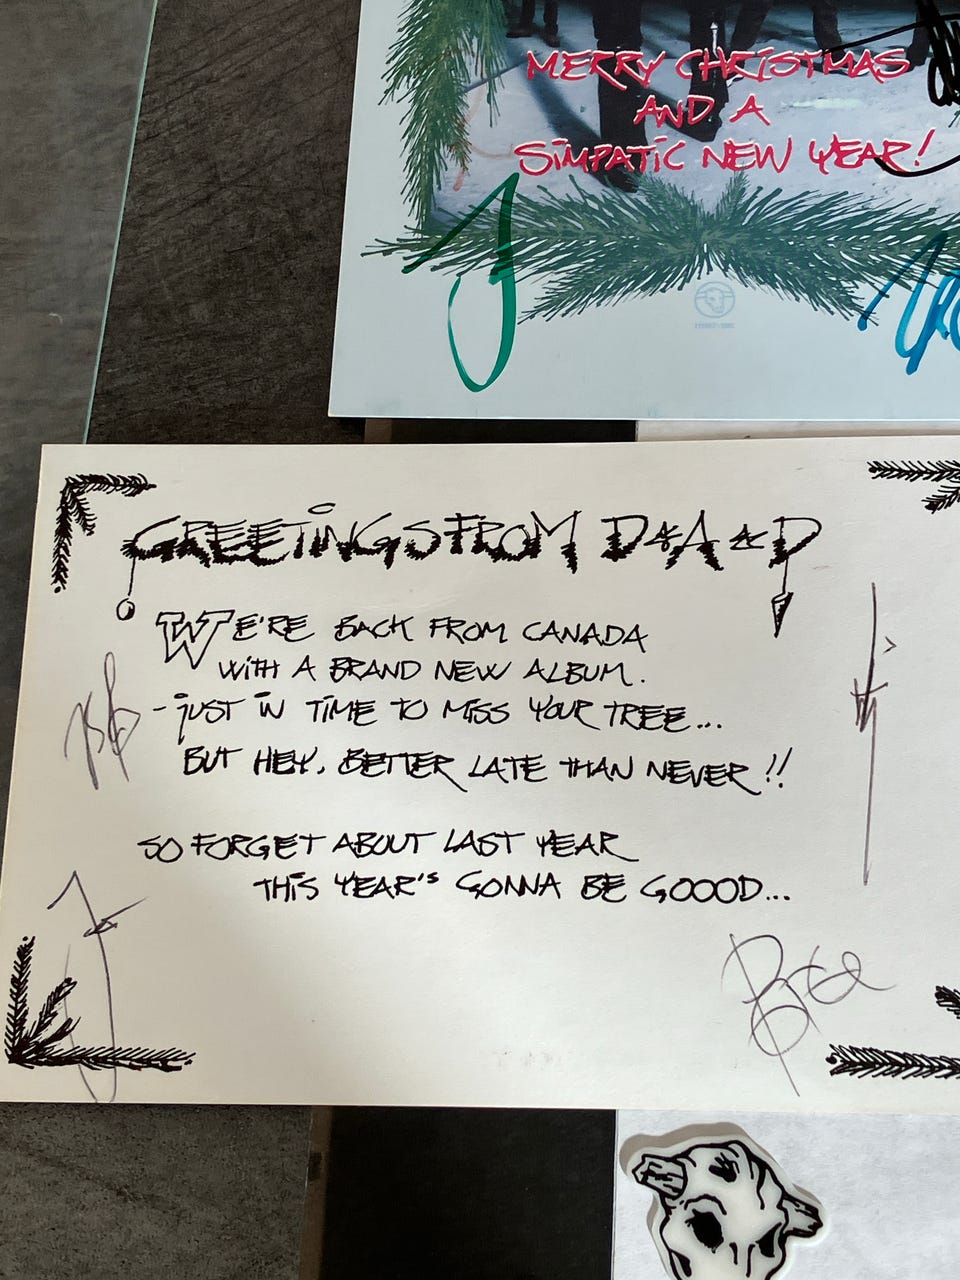 MERRY CHRISTMAS
AND A
SIMPATIC NEW YEAR!
GREETINGS FROM D☆A☆D
WE'RE BACK FROM CANADA
WITH A BRAND NEW ALBUM.
- JUST IN TIME TO MISS YOUR TREE...
BUT HEY, BETTER LATE THAN NEVER!!
SO FORGET ABOUT LAST YEAR
THIS YEAR'S GONNA BE GOOOD...